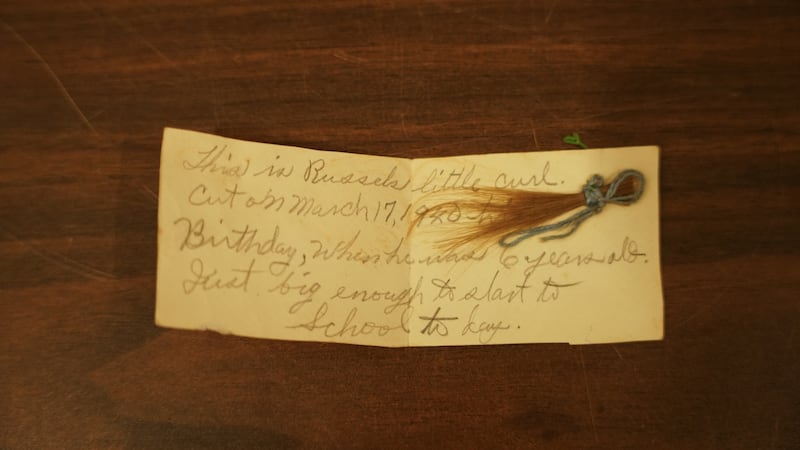 This is Russels little curl.
Cut on March 17, 1920
Birthday, When he was 6 years old.
Just big enough to start to
School to day.